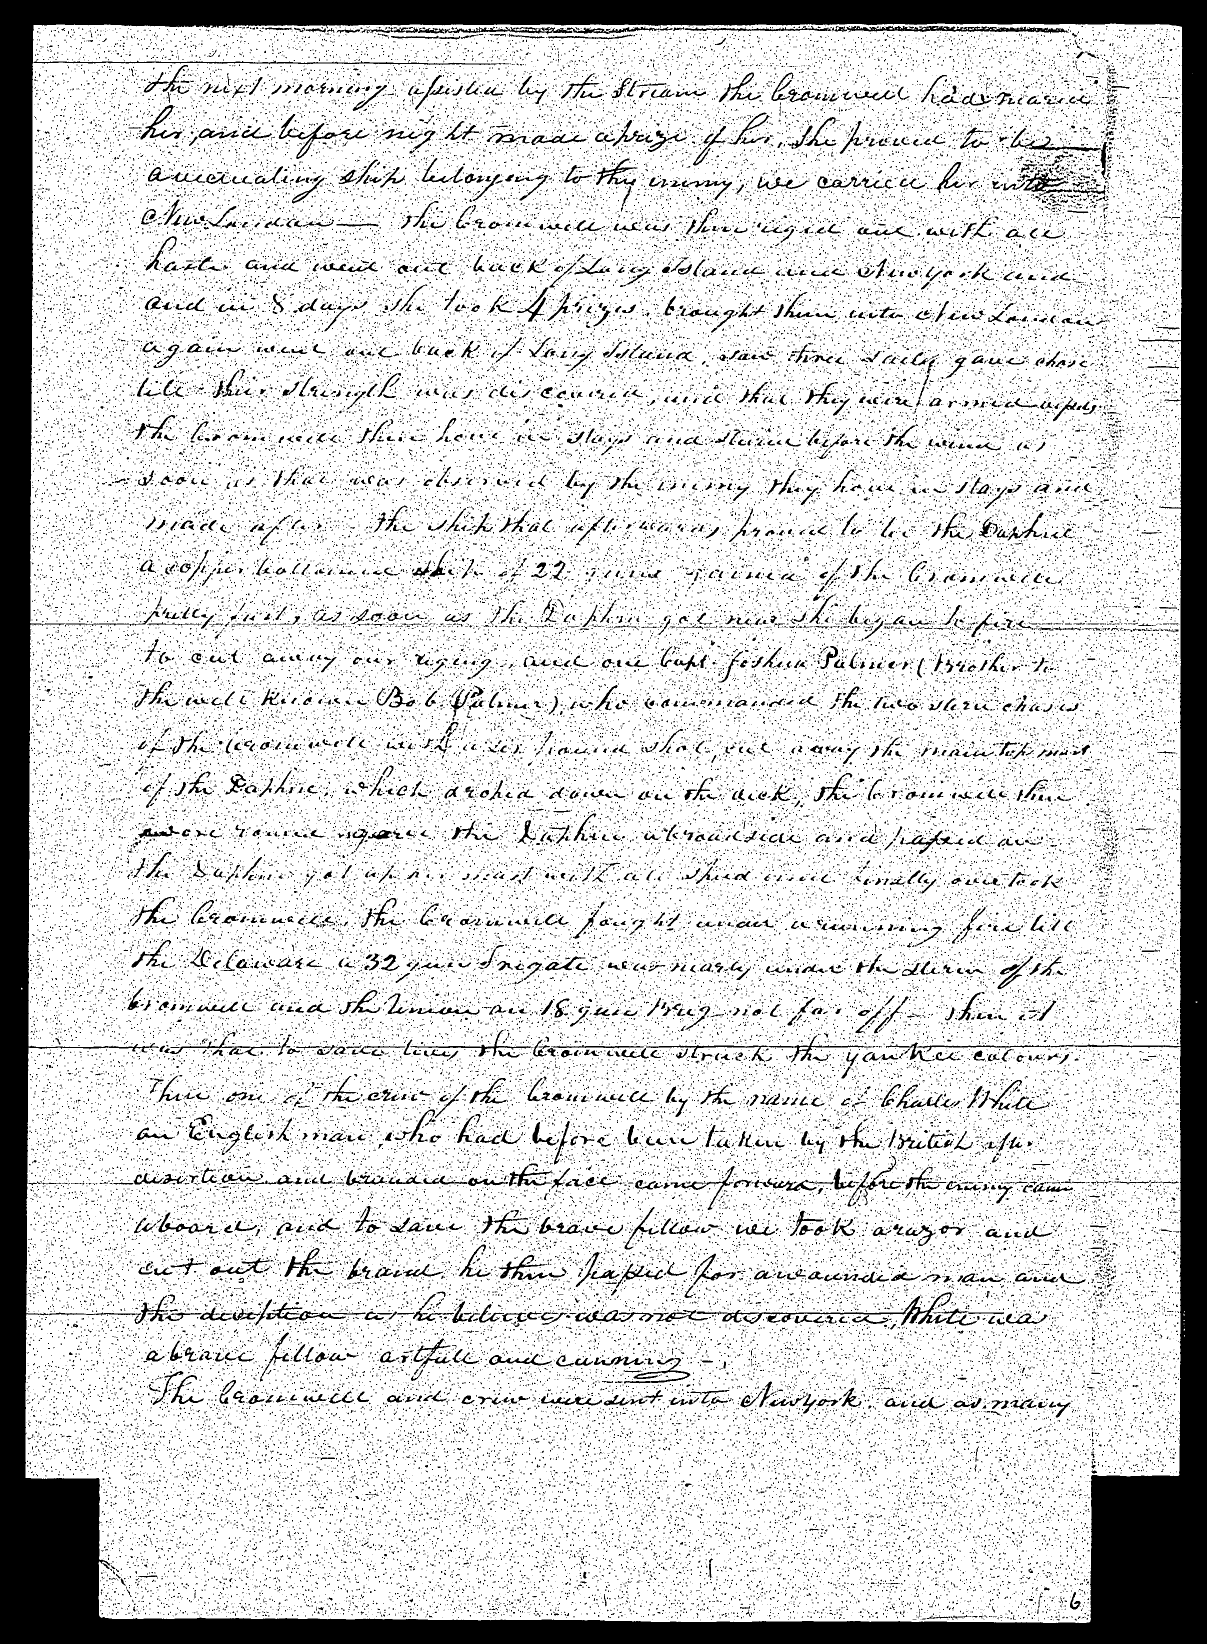 the next morning assisted by the Stream the Cromwell had neared
her, and before night made a prize of her, she proved to be
a recruiting ship belonging to the enemy, we carried her into
New London — the Cromwell was then riged out with all
haste and went out back of Long Island and New york and
and in 8 days she took 4 prizes. brought them into New London
again went out back of Long Island, saw three sails gave chase
till their strength was discovered, and that they were armed vessels
the Cromwell then hove in stays and steared before the wind as
soon as that was observed by the enemy they hove in stays and
made after - the ship that afterwards proved to be the Daphne
a copper bottomed ship of 22 guns gained of the Cromwell
pretty fast, as soon as the Daphne got near she began to fire
to cut away our riging, and one Capt. Joshua Palmer (Brother to
the well known Bob Palmer), who commanded the two stern chases
of the Cromwell with a six pound shot, cut away the main top mast
of the Daphne, which droped down on the deck, the Cromwell then
wore round the Daphne a broadside and passed on
the Daphne got up her mast with all speed and finally overtook
the Cromwell, the Cromwell fought under a running fire till
the Delaware a 32 gun Frigate was nearly under the stern of the
Cromwell and the Union an 18 gun Brig not far off - then it
was that to save lives the Cromwell struck the yankee colours.
Then one of the crew of the Cromwell by the name of Charles White
an English man, who had before been taken by the British after
desertion and branded on the face came forward, before the enemy came
aboard, and to save the brave fellow we took a razor and
cut out the brand. he then passed for a wounded man and
the deception as he believes was not discovered, White was
a brave fellow artfull and cunning -.
The Cromwell and crew were sent into New york. and as many
6